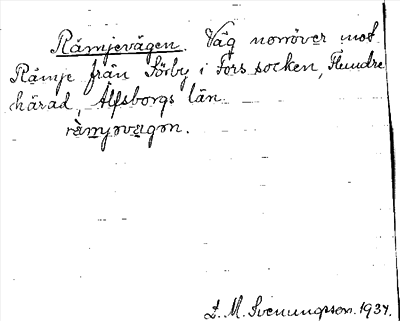 Rämjevägen. Väg norröver mot
Rämje från Sörby i Fors socken, Flundre
härad, Älfsborgs län.
rämjəvægən.
S. M. Svenungsson. 1934.